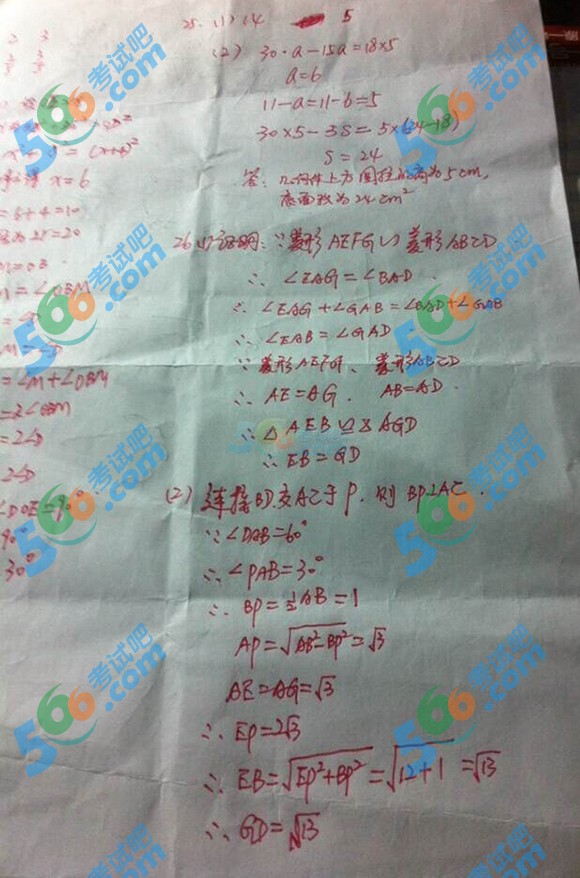 2 3
x = 6
= 6 + 4 = 10
= 20
= ∠OBM
= ∠M + ∠OBM
= 2∠OBM
= 2∠D
2∠D
∠DOE = 90°
90°
30°
25. (1) 14 5
(2) 30·a - 15a = 18×5
a = 6
11 - a = 11 - 6 = 5
30×5 - 5S = 5×(24-18)
S = 24
答: 几何体上方圆柱的高为5cm,
底面积为24cm²
26 (1) 证明: ∵ 菱形AEFG∽菱形ABCD
∴ ∠EAG = ∠BAD
∴ ∠EAG + ∠GAB = ∠BAD + ∠GAB
∴ ∠EAB = ∠GAD
∵ 菱形AEFG、菱形ABCD
∴ AE = AG. AB = AD.
∴ △AEB ≌ △AGD
∴ EB = GD
(2) 连接BD交AC于P. 则BP⊥AC.
∵ ∠DAB = 60°
∴ ∠PAB = 30°
∴ BP = ½AB = 1
AP = √(AB²-BP²) = √3
AE = AG = √3
∴ EP = 2√3
∴ EB = √(EP²+BP²) = √(12+1) = √13
∴ GD = √13
566考试吧.com